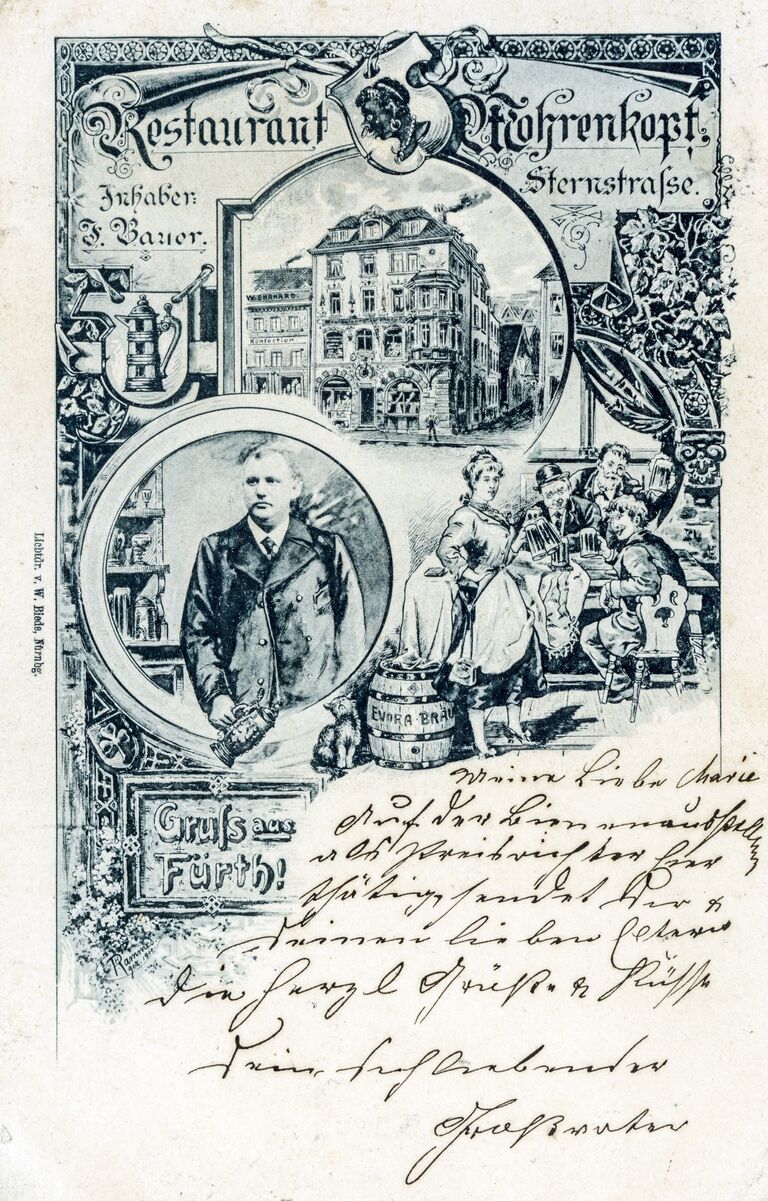 Restaurant Mohrenkopf,
Sternstrasse.
Inhaber:
J. Bauer.
W. EHRHARD
Konfection
EVORA-BRÄU
Lichtdr. v. W. Biede, Nürnbg.
Gruss aus
Fürth!
Meine Liebe Marie
Auf der Bienenausstellung
als Preisrichter hier
thätig, sendet Dir &
Deinen lieben Eltern
die herzl Grüße & Küsse
Dein Dich liebender
Großvater